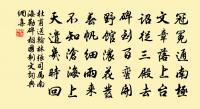 冠冕通南極
文章落上台
詔從三殿去
碑到百蠻開
野館濃花發
春帆細雨來
不知滄海上
天遣幾時回
杜甫送翰林張司馬南
海勒碑相國制文詞典
網集